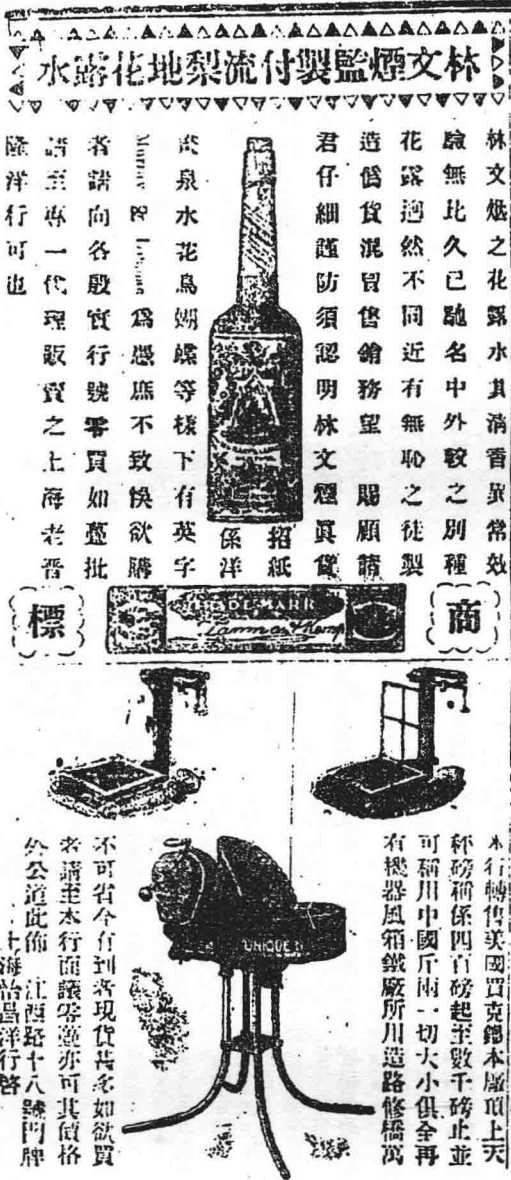 林文煙監製付流梨地花露水
林文烟之花露水其清香異常效
驗無比久已馳名中外較之別種
花露迥然不同近有無恥之徒製
造僞貨混冒售銷務望 賜顧諸
君仔細謹防須認明林文煙眞貨
招紙
係洋
泉水花鳥蝴蝶等樣下有英字
Murray & Lanman 爲憑庶不致悞欲購
者請向各殷實行號零買如躉批
請至專一代理販賣之上海老晉
隆洋行可也
商標
TRADE MARK
Lanman & Kemp
本行轉售美國買克鍚本廠頂上天
秤磅稱係四百磅起至數千磅止並
可稱用中國斤兩一切大小俱全再
有機器風箱鐵廠所用造路修橋萬
不可省今有到者現貨甚多如欲買
者請至本行面議零躉亦可其價格
外公道此佈 江西路十八號門牌
上海怡昌洋行啓
UNIQUE